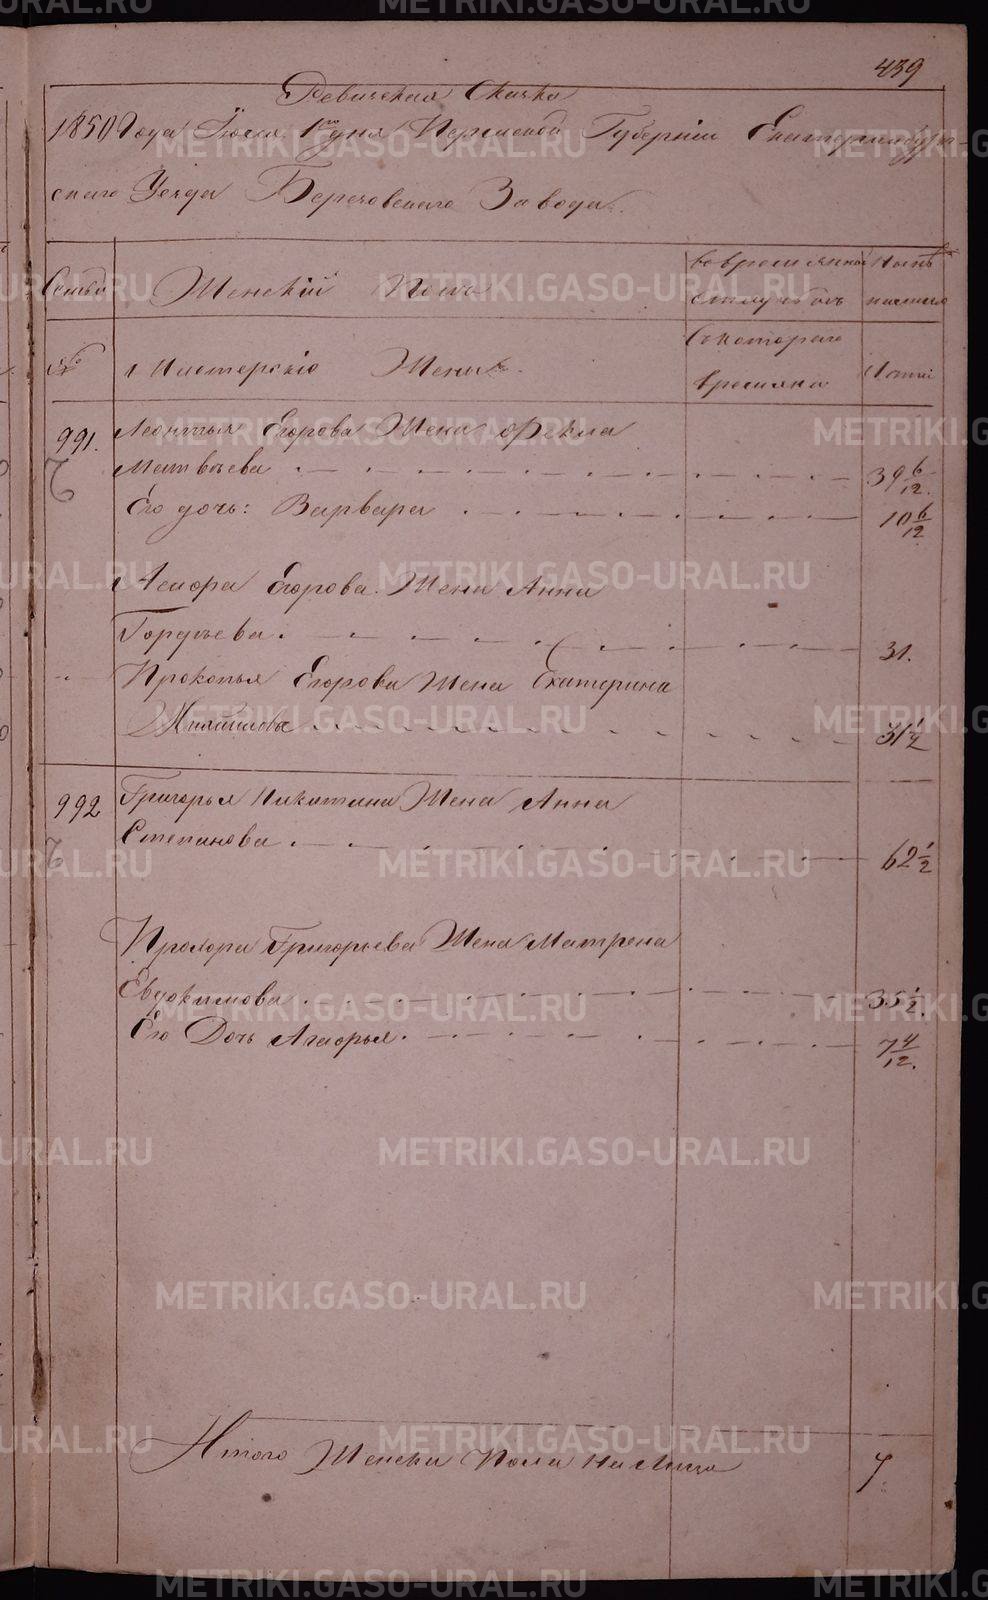 439
Ревичская Скачка
1850 Года Июля 1го дня Пермской Губернии Екатеринбург-
скаго Уезда Березовскаго Завода.
Семьи Женский Полъ во временной отлучкѣ Нынѣ
на лицо
№ Мастерскіе Жены Съ котораго времяни Лета
991. Леонтья Егорова Жена Фекла
Матвѣева 39 6/12.
Его дочь: Варвара 10 6/12
Егорова Жена Анна
Гордѣева. 31.
Прокопья Егорова Жена Екатерина
31 1/2
992 Григорья Никитина Жена Анна
Степанова 62 1/2
Прохора Григорьева Жена Матрена
Евдокимова 35 1/2.
Его Дочь 7 4/12.
Итого Женска Пола На Лицо 7
METRIKI.GASO-URAL.RU